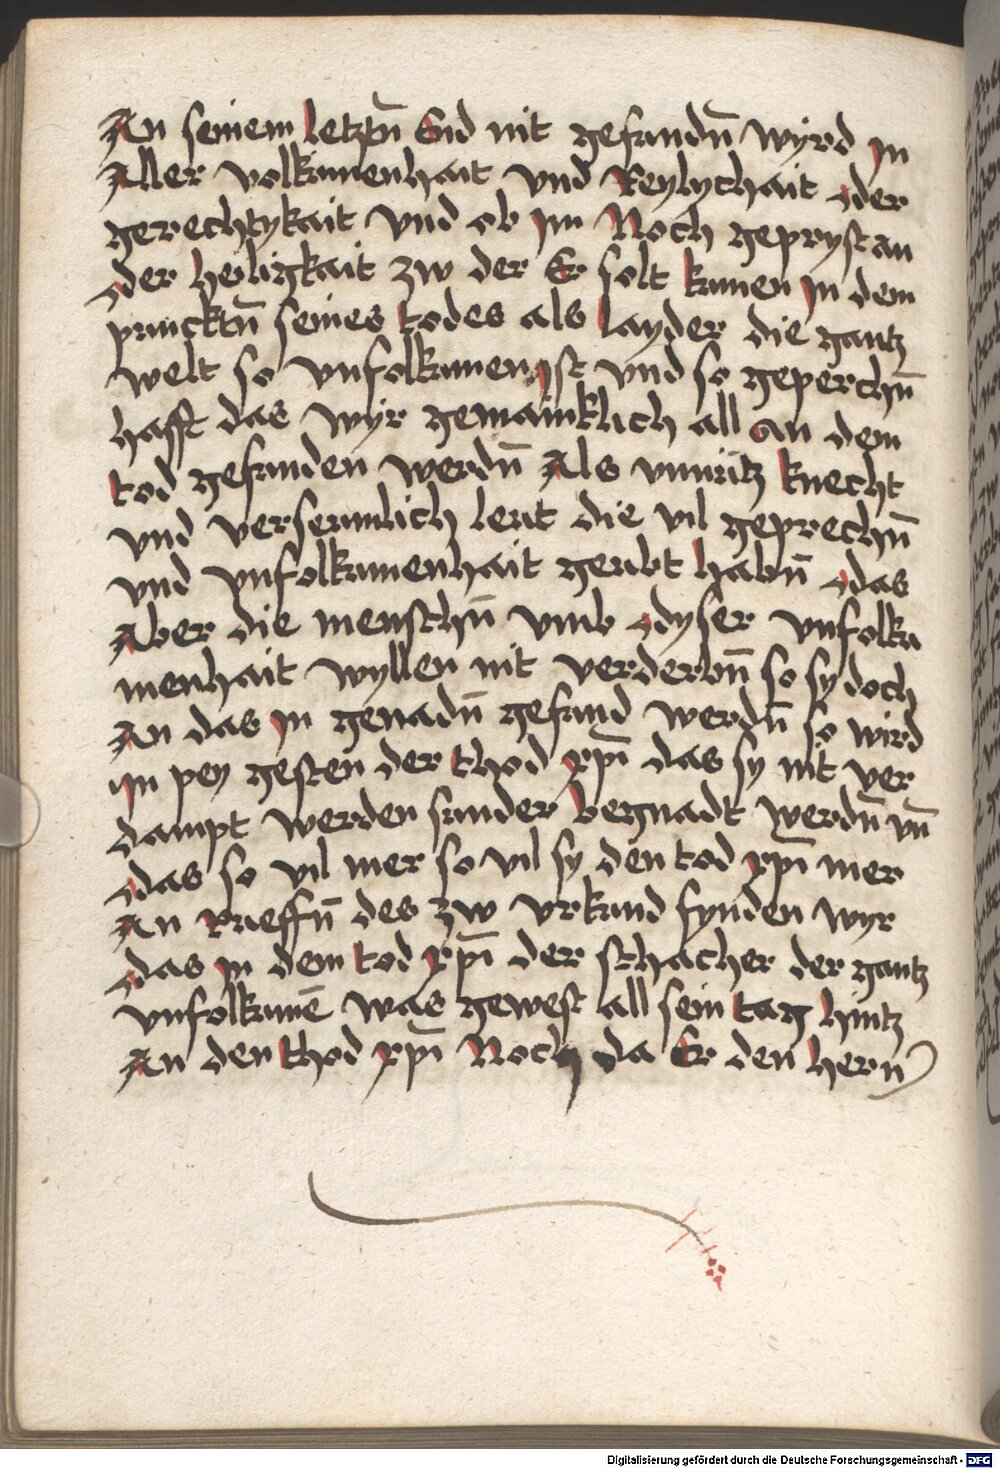 An seinem letztn̄ End nit gefundn̄ wyrd jn
Aller volkumenhait vnd Reylychait oder
gerechtykait vnd ob jm Noch gepryst an
der heiligkait zw der Er solt kumen jn dem
puncktn̄ seines todes als layder die gantz
welt so vnfolkumen jst vnd so geperchn̄
hafft das wyr gemainklich all an dem
tod gefunden werdn̄ Als vnnütz knecht
vnd verseumlich leut die vil geprechn̄
vnd vnfolkumenhait geubt habn̄ das
Aber die menschn̄ vmb dyser vnfolku
menhait wyllen nit verderbn̄ so sy doch
An das jn genadn̄ gefund werdn̄ so wird
jn pey gesten der thod xp̄i das sy nit ver
dampt werden sunder begnadt werdn̄ vn̄
das so vil mer so vil sy den tod xp̄i mer
An rueffn̄ des zw vrkund fynden wyr
das jn dem tod xp̄i der schacher der gantz
vnfolkumē was gewest all sein tag hintz
An den thod xp̄i Noch da Er den hern
Digitalisierung gefördert durch die Deutsche Forschungsgemeinschaft - DFG